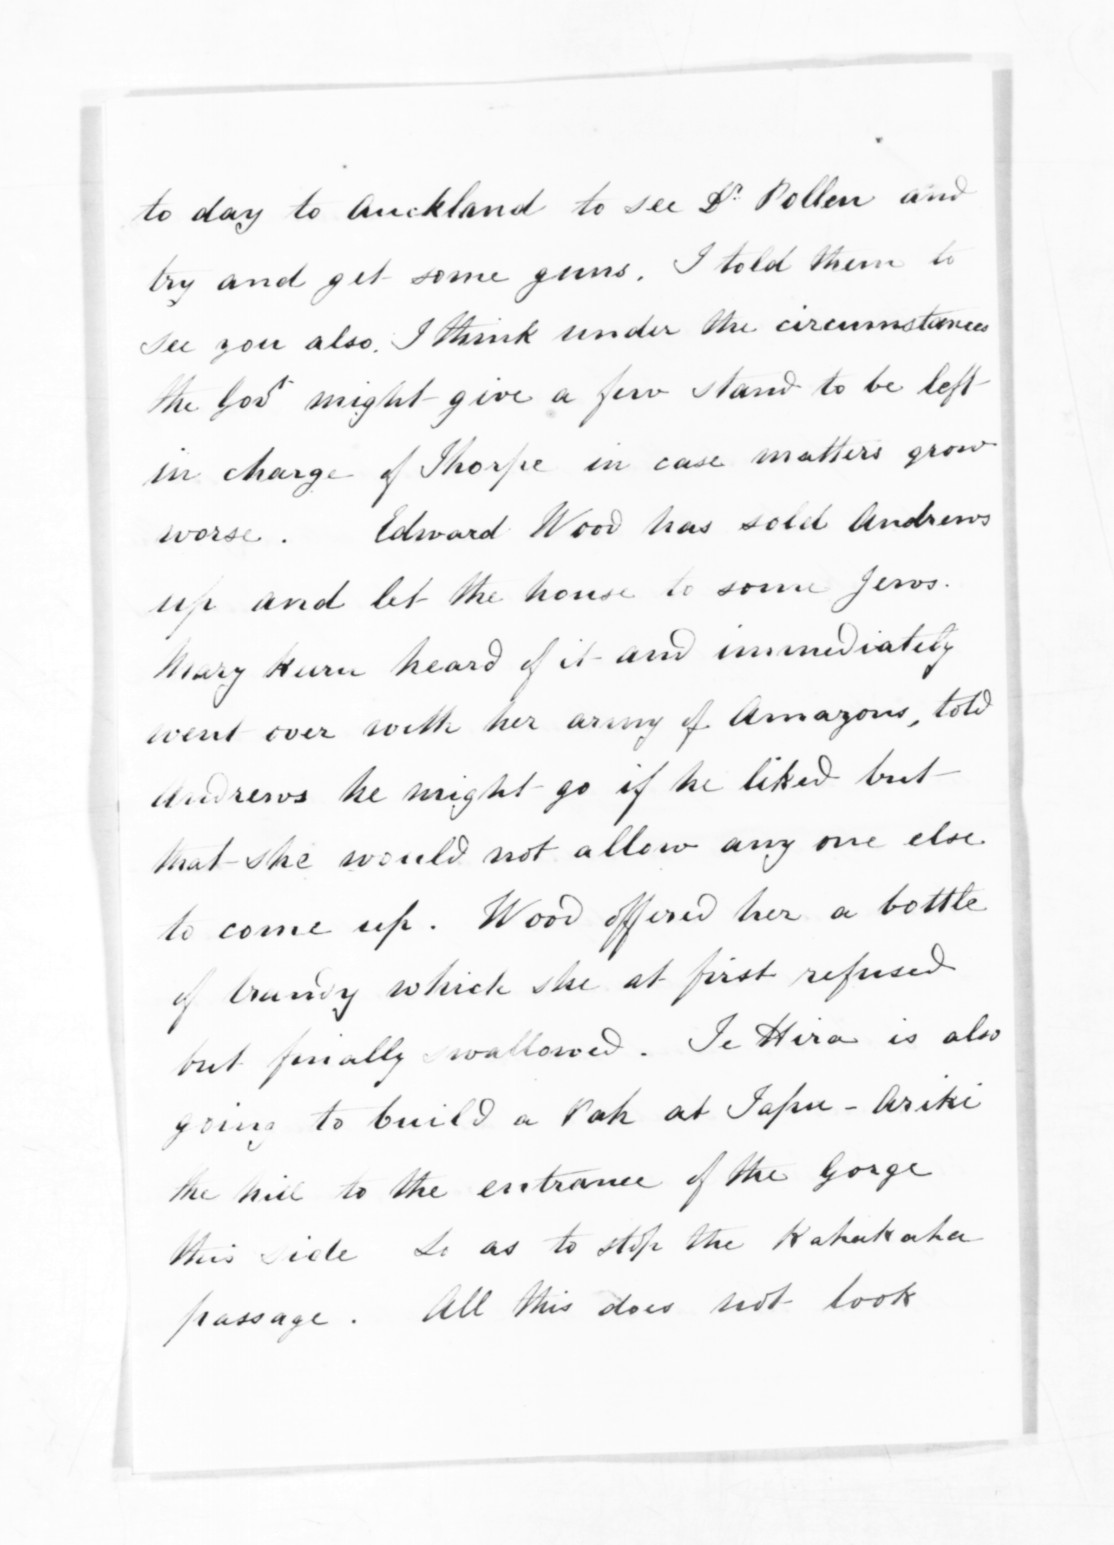 to day to Auckland to see Dr. Pollen and
try and get some guns. I told them to
see you also. I think under the circumstances
the Govt might give a few stand to be left
in charge of Thorpe in case matters grow
worse. Edward Wood has sold Andrews
up and let the house to some Jews.
Mary Kuru heard of it and immediately
went over with her army of Amazons, told
Andrews he might go if he liked but
that she would not allow any one else
to come up. Wood offered her a bottle
of brandy which she at first refused
but finally swallowed. Te Hira is also
going to build a Pah at Tapu-Ariki
the hill to the entrance of the Gorge
this side so as to stop the Kahakaha
passage. All this does not look